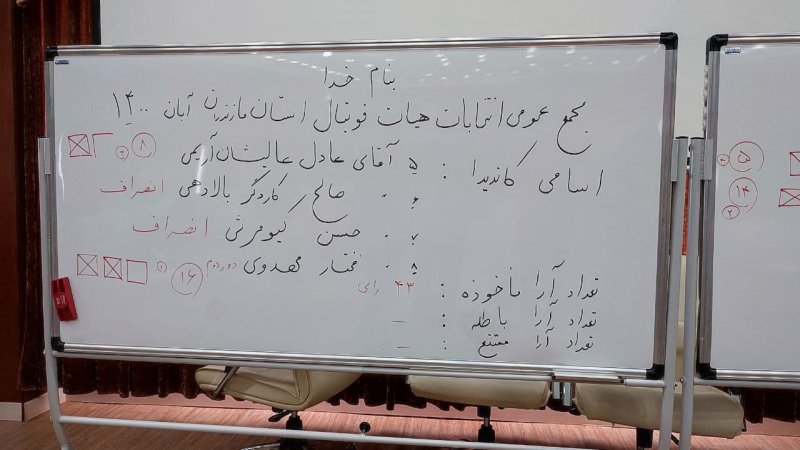 بنام خدا
مجمع عمومی انتخابات هیات فوتبال استان مازندران آبان ۱۴۰۰
اسامی کاندیدا : ۵ آقای عادل عالیشان آریمی ۸ ۲
۶ " صالح کاردگر بالادهی انصراف
۷ " حسن کیومرثی انصراف
۸ " مختار مهدوی دور دوم ۱۶
تعداد آرا مأخوذه : ۴۳ رای
تعداد آرا باطله : –
تعداد آرا ممتنع : –
۵
۱۴
۲